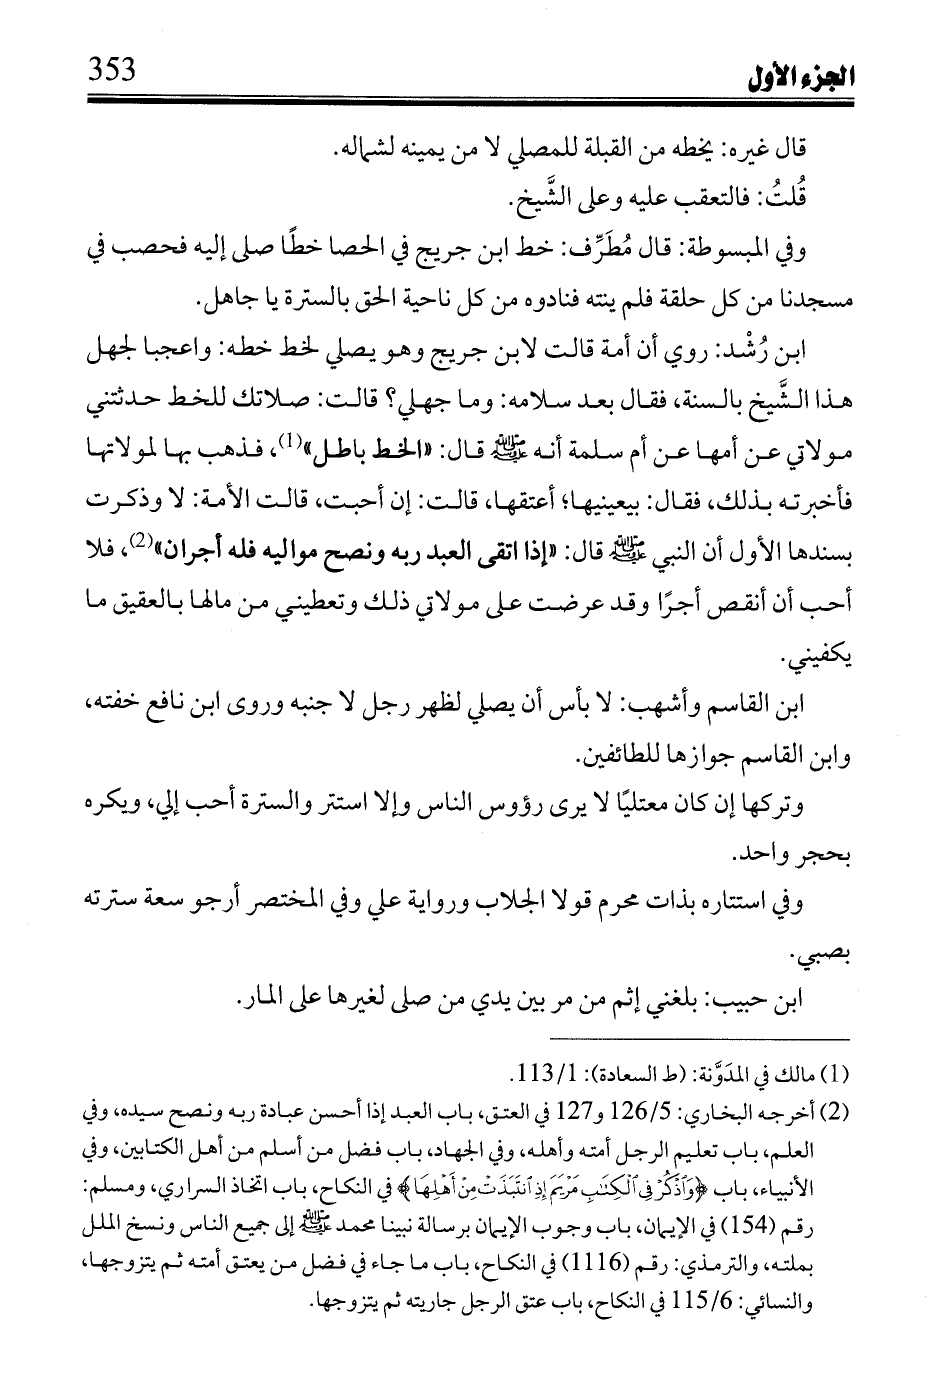 الجزء الأول
353
قال غيره: يخطه من القبلة للمصلي لا من يمينه لشماله.
قُلتُ: فالتعقب عليه وعلى الشَّيخ.
وفي المبسوطة: قال مُطَرِّف: خط ابن جريج في الحصا خطًا صلى إليه فحصب في
مسجدنا من كل حلقة فلم ينته فنادوه من كل ناحية الحق بالسترة يا جاهل.
ابن رُشْد: روي أن أمة قالت لابن جريج وهو يصلي لخط خطه: واعجبا لجهل
هذا الشَّيخ بالسنة، فقال بعد سلامه: وما جهلي؟ قالت: صلاتك للخط حدثتني
مولاتي عن أمها عن أم سلمة أنه ﷺ قال: «الخط باطل»(1)، فذهب بها لمولاتها
فأخبرته بذلك، فقال: بيعينيها؛ أعتقها، قالت: إن أحبت، قالت الأمة: لا وذكرت
بسندها الأول أن النبي ﷺ قال: «إذا اتقى العبد ربه ونصح مواليه فله أجران»(2)، فلا
أحب أن أنقص أجرًا وقد عرضت على مولاتي ذلك وتعطيني من مالها بالعقيق ما
يكفيني.
ابن القاسم وأشهب: لا بأس أن يصلي لظهر رجل لا جنبه وروى ابن نافع خفته،
وابن القاسم جوازها للطائفين.
وتركها إن كان معتليًا لا يرى رؤوس الناس وإلا استتر والسترة أحب إلي، ويكره
بحجر واحد.
وفي استتاره بذات محرم قولا الجلاب ورواية علي وفي المختصر أرجو سعة سترته
بصبي.
ابن حبيب: بلغني إثم من مر بين يدي من صلى لغيرها على المار.
(1) مالك في المدَوَّنة: (ط السعادة): 113/1.
(2) أخرجه البخاري: 126/5 و127 في العتق، باب العبد إذا أحسن عبادة ربه ونصح سيده، وفي
العلم، باب تعليم الرجل أمته وأهله، وفي الجهاد، باب فضل من أسلم من أهل الكتابين، وفي
الأنبياء، باب ﴿وَٱذْكُرْ فِي ٱلْكِتَٰبِ مَرْيَمَ إِذِ ٱنتَبَذَتْ مِنْ أَهْلِهَا﴾ في النكاح، باب اتخاذ السراري، ومسلم:
رقم (154) في الإيمان، باب وجوب الإيمان برسالة نبينا محمد ﷺ إلى جميع الناس ونسخ الملل
بملته، والترمذي: رقم (1116) في النكاح، باب ما جاء في فضل من يعتق أمته ثم يتزوجها،
والنسائي: 115/6 في النكاح، باب عتق الرجل جاريته ثم يتزوجها.